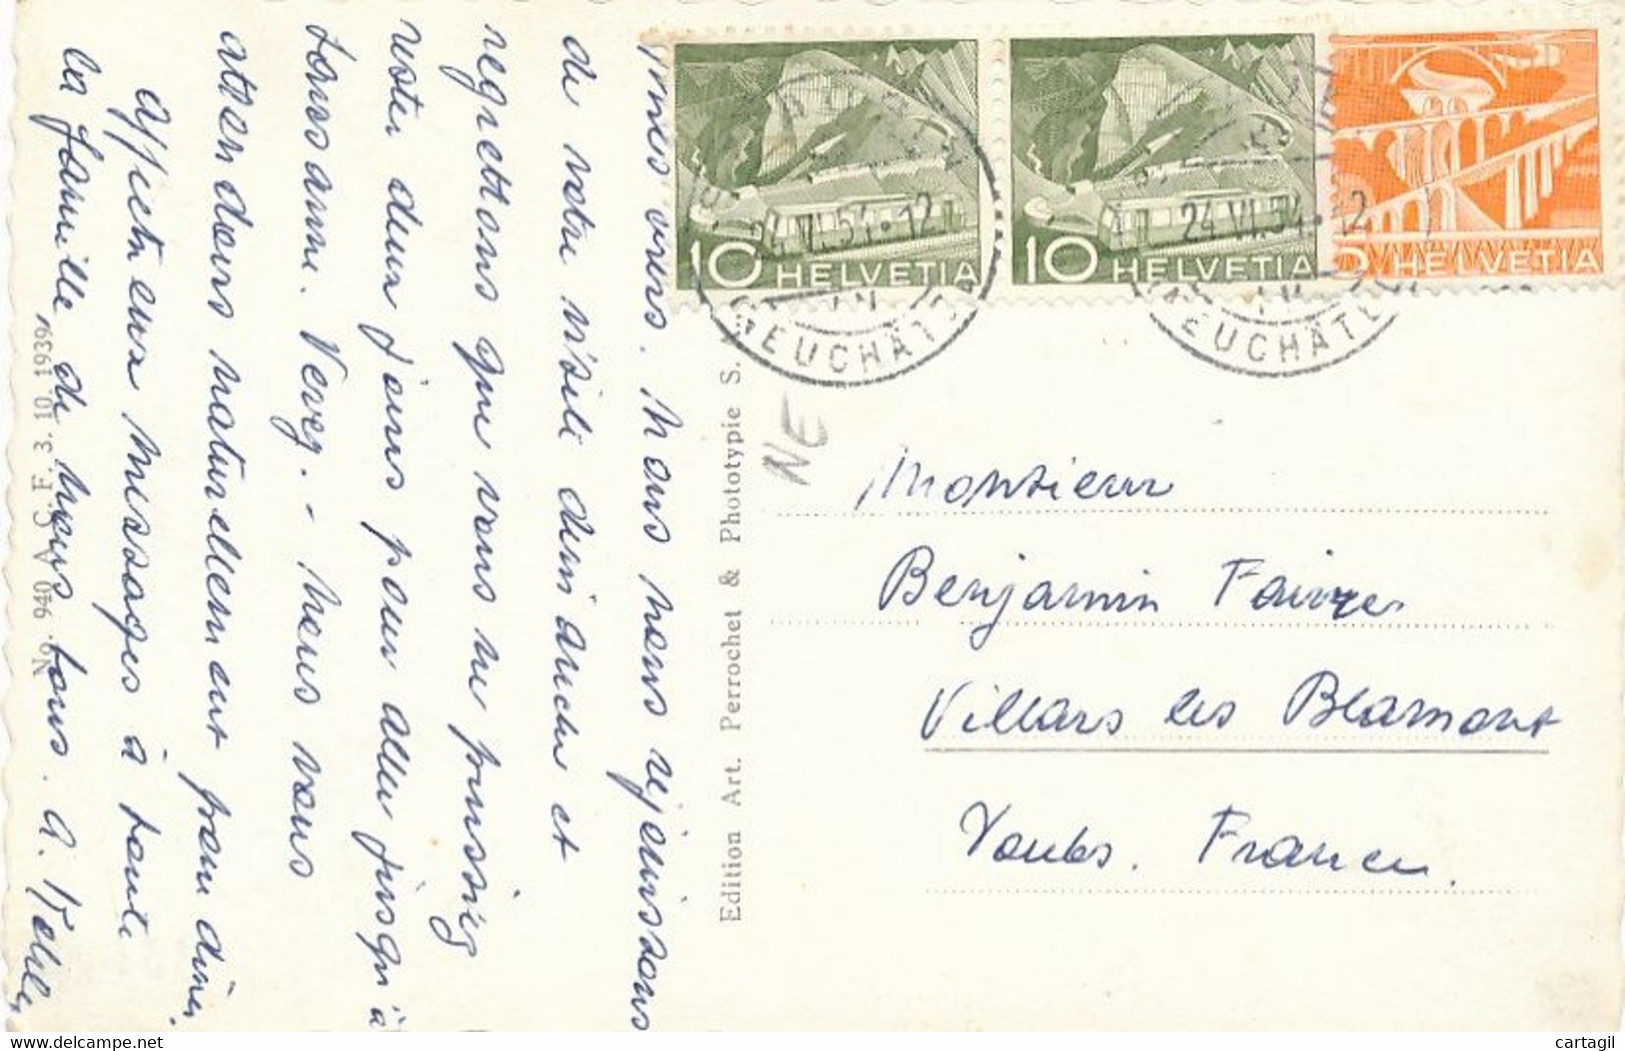 Mes amis. Nous nous réjouissons
de votre visite dimanche et
regrettons que vous ne puissiez
rester deux jours pour aller jusqu'à
Lausanne. Vevey. - Nous vous
attendons naturellement pour dîner,
Affectueux messages à toute
la famille, de nous tous. A.
No. 940 A. C. F. 3. 10. 1939
Edition Art. Perrochet & Phototypie S.
10 HELVETIA
10 HELVETIA
5 HELVETIA
24.VI.54.12
NEUCHÂTEL
24.VI.54.12
NEUCHÂTEL
NE
Monsieur
Benjamin
Villars les Blamont
Doubs. France.
cartagil